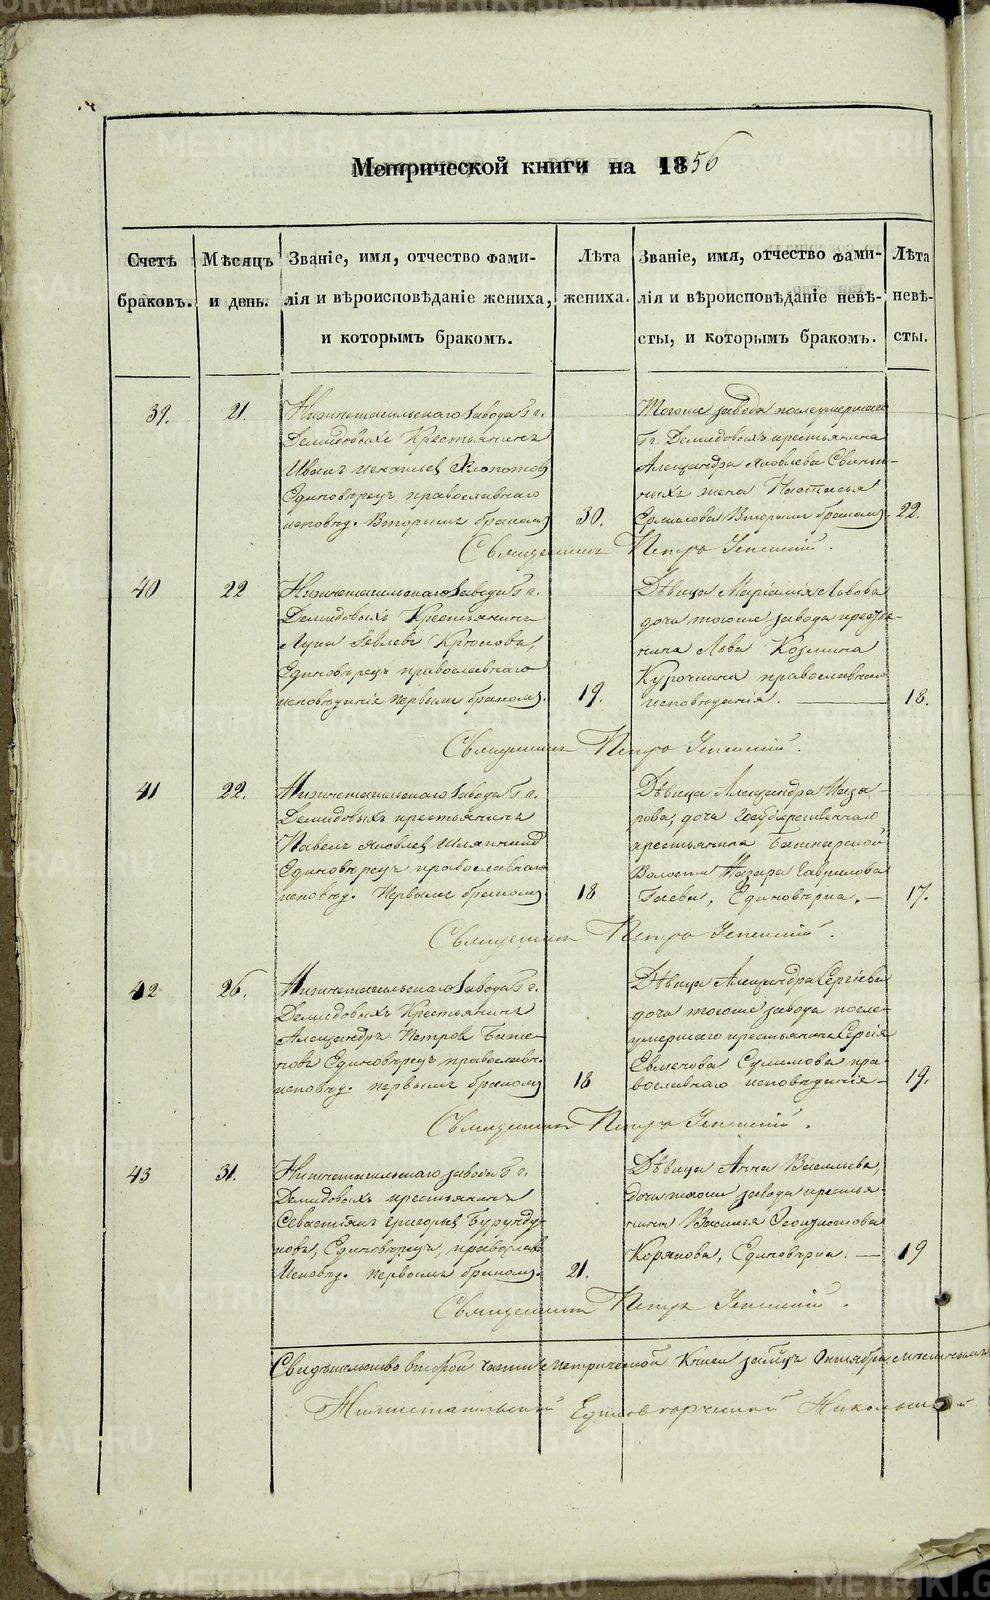 Метрической книги на 1856
Счетъ браковъ.
Мѣсяцъ и день.
Званіе, имя, отчество фами-
лія и вѣроисповѣданіе жениха,
и которымъ бракомъ.
Лѣта жениха.
Званіе, имя, отчество фами-
лія и вѣроисповѣданіе невѣ-
сты, и которымъ бракомъ.
Лѣта невѣ-
сты.
39.
21.
Нижнетагильскаго завода Гг.
Демидовыхъ Крестьянинъ
Иванъ Хлопотовъ
Единовѣрецъ православнаго
исповѣд. Вторымъ бракомъ
30.
Тогоже завода послеумершаго
Гг. Демидовыхъ крестьянина
Александра Яковлева Свинь-
ныхъ жена Настасья
Ермилова Вторымъ бракомъ.
22.
Священникъ Петръ
40
22
Нижнетагильскаго завода Гг.
Демидовыхъ Крестьянинъ
Лука Крюковъ,
Единовѣрецъ православнаго
исповѣданіе первымъ бракомъ.
19.
Дѣвица Маріамія Львова
дочь тогоже завода крестья-
нина Льва Козмина
Курочкина православнаго
исповѣданія.
18.
Священникъ Петръ
41
22.
Нижнетагильскаго завода Гг.
Демидовыхъ крестьянинъ
Павелъ Яковлевъ
Единовѣрецъ православнаго
исповѣд. Первымъ бракомъ
18
Дѣвица Александра Наза-
рова, дочь государственнаго
крестьянина
Волости Назара Гаврилова
Гаева, Единовѣрка. —
17.
Священникъ Петръ
42
26.
Нижнетагильскаго завода Гг.
Демидовыхъ Крестьянинъ
Александръ Петровъ Баже-
новъ Единовѣрецъ православн.
исповѣд. первымъ бракомъ
18
Дѣвица Александра Сергіева
дочь тогоже завода после-
умершаго крестьянина Сергія
Евменова Сулимова пра-
вославнаго исповѣданіе —
19.
Священникъ Петръ
43
31.
Нижнетагильскаго завода Гг.
Демидовыхъ крестьянинъ
Севастіянъ Григорьевъ Бурунду-
ковъ, Единовѣрецъ, православн.
Исповѣд. первымъ бракомъ.
21.
Дѣвица Анна Васильева,
дочь тогоже завода крестья-
нина Василья
Корякова, Единовѣрка. —
19
Священникъ Петръ
Свидѣтельство второй части метрической Книги
Нижнетагильской Единовѣрческой Никольской
METRIKI.GASO-URAL.RU